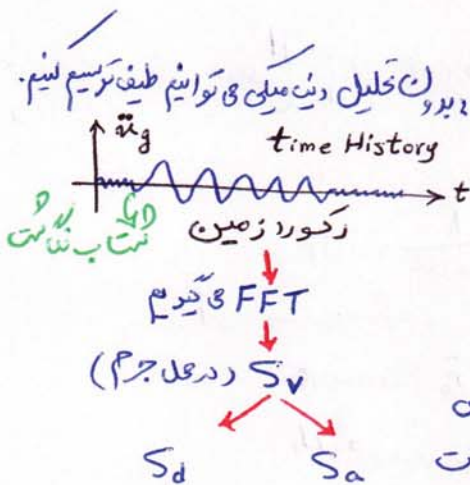 بدون تحلیل دینامیکی می توانیم طیف ترسیم کنیم.
üg time History
t
شتاب نگاشت
رکورد زمین
FFT می گیریم
Sv (در محل جرم)
Sd Sa